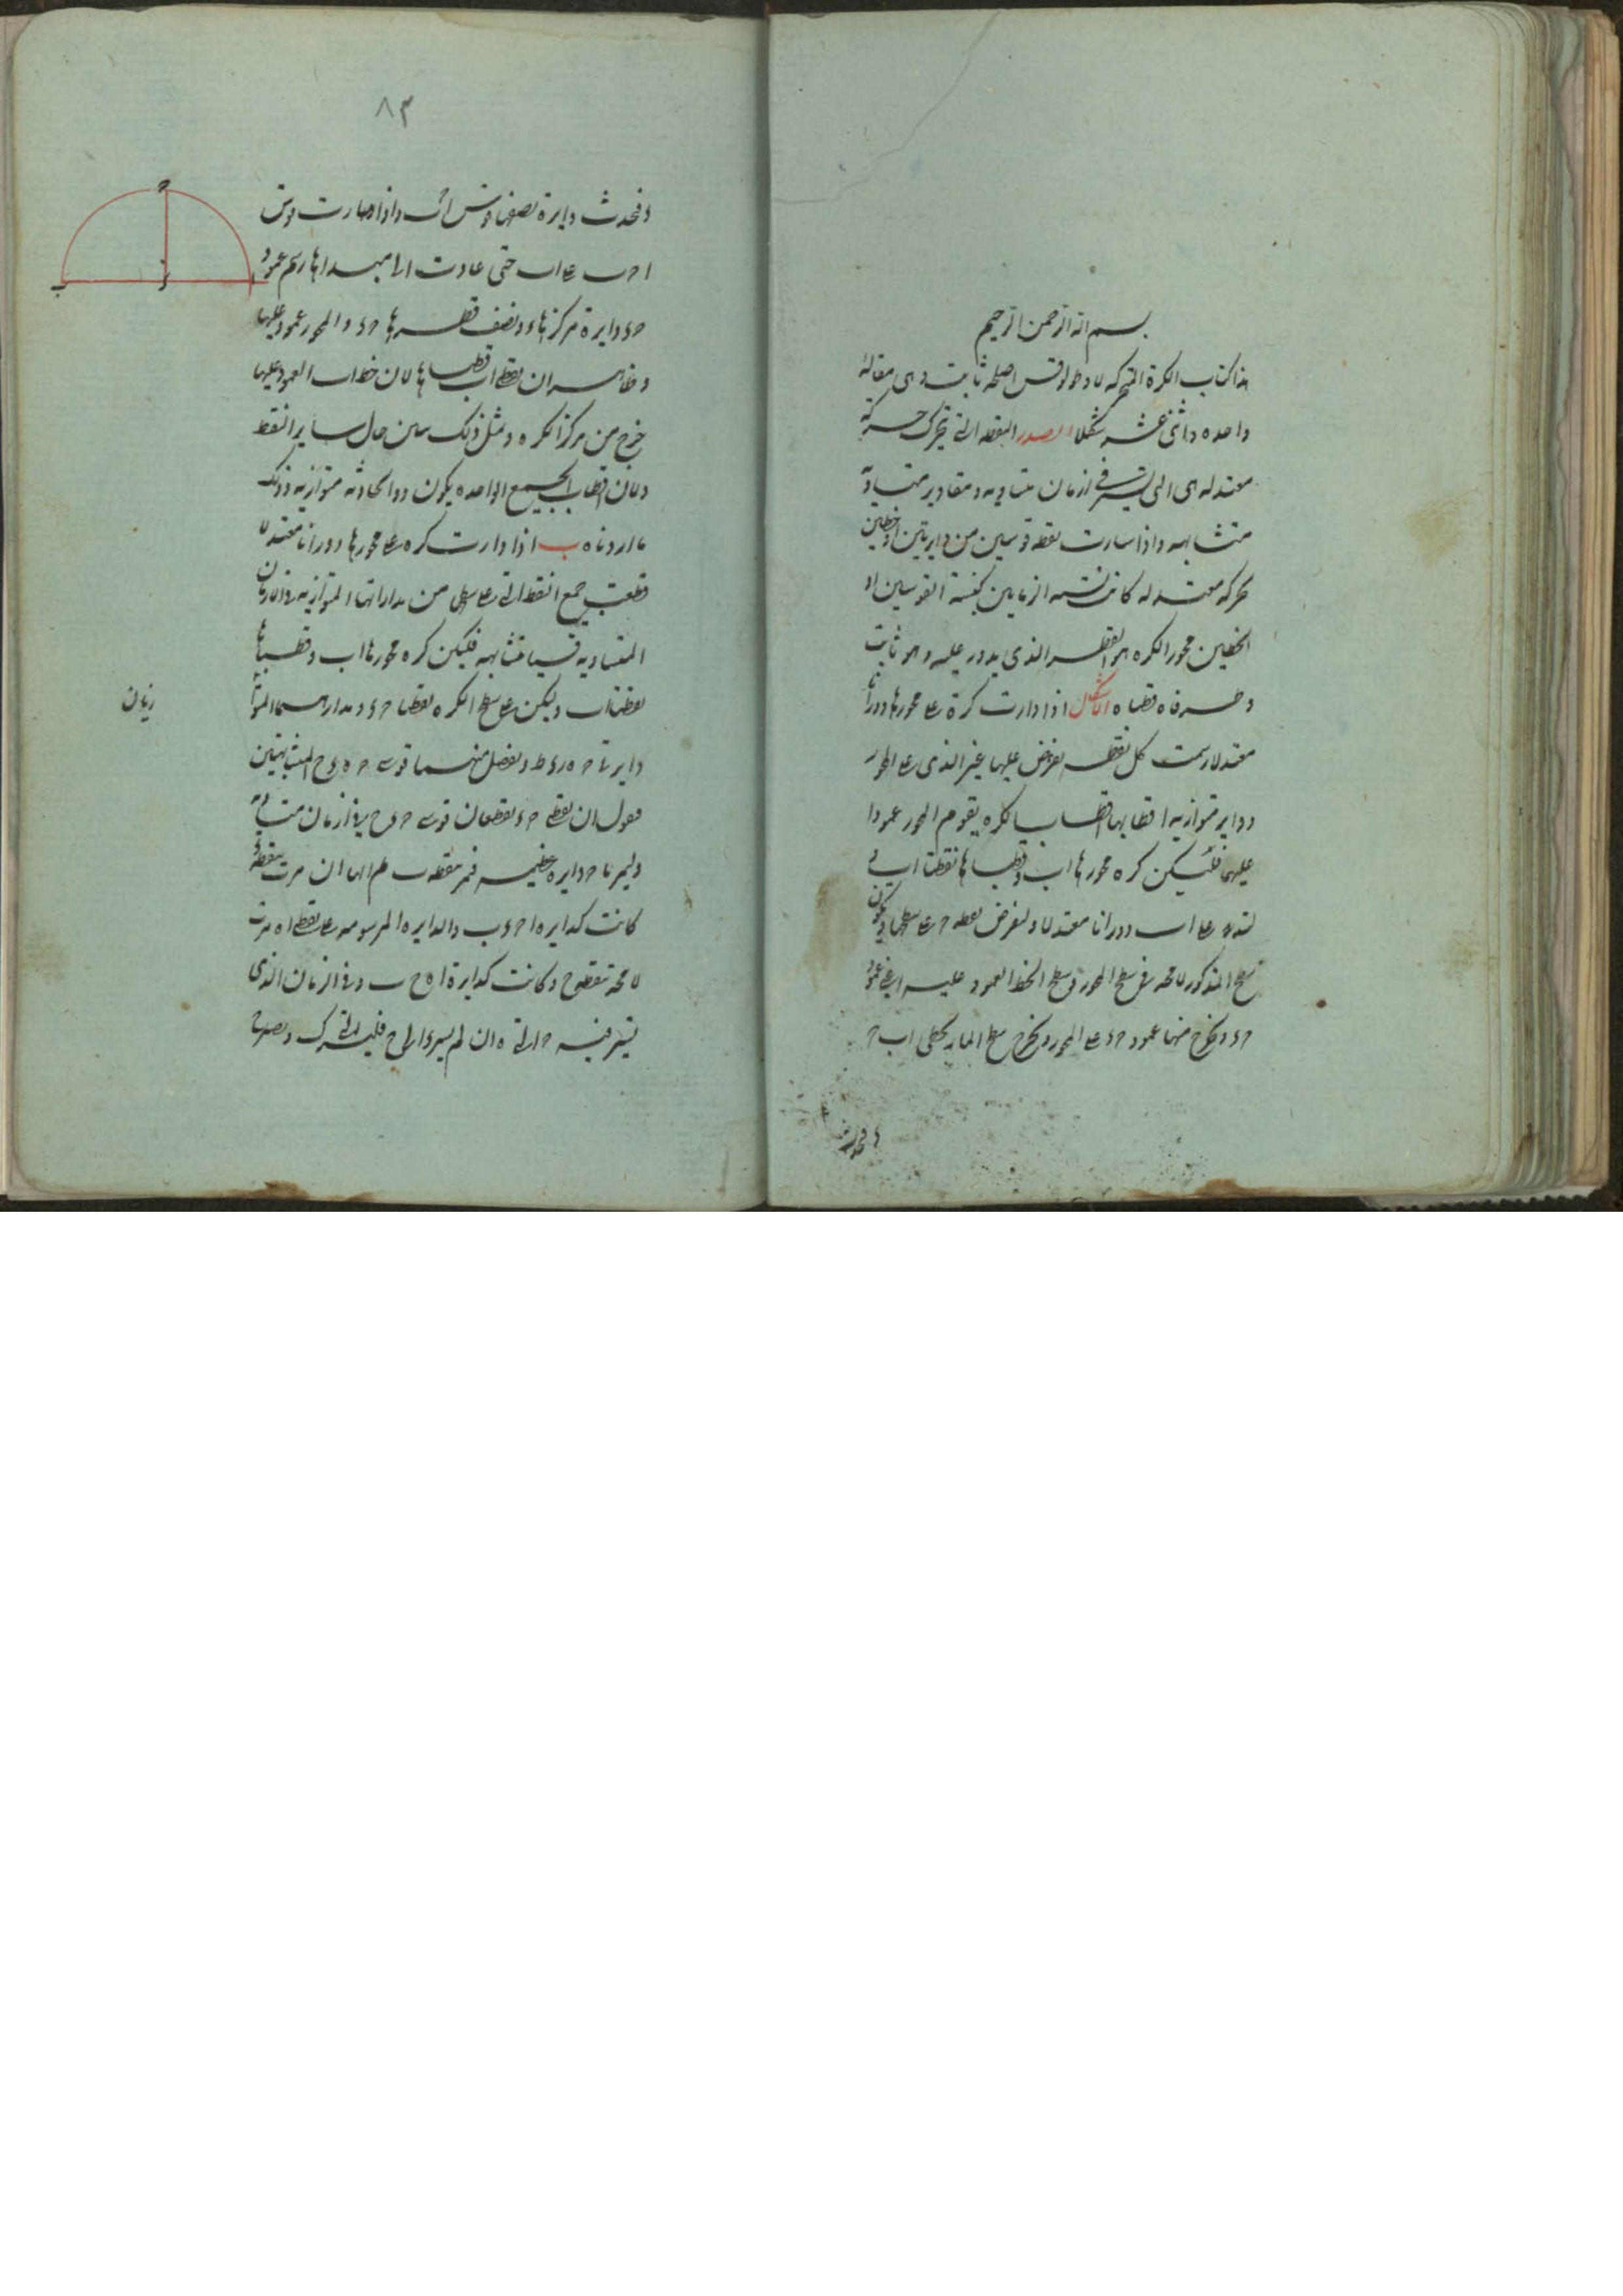 بسم الله الرحمن الرحيم
هذا كتاب الكرة المتحركه لاوطولوقس اصلحه ثابت وهى مقالة
واحده واثنى عشر شكلا الصدر النقطه التى تتحرك حركة
معتدله هى التى تسير فى ازمان متساويه مقادير متساوية
متشابهه واذا سارت نقطه قوسين من دايرتين او خطين
بحركه معتدله كانت نسبه الزمانين كنسبة القوسين او
الخطين محور الكره هو القطر الذى يدور عليه وهو ثابت
وطرفاه قطباه الاشكال ا اذا دارت كرة على محورها دورانا
معتدلا رسمت كل نقطه تفرض عليها غير الذى على المحور
دواير متوازيه اقطابها قطبا الكره يقوم المحور عمودا
عليها فليكن كره محورها اب وقطباها نقطتا اب
لتدر على اب دورانا معتدلا ولنفرض نقطه ح على سطحها
سطح المذكور لا محه فى سطح المحور وسطح الخط العمود عليه اعنى عمود
حء ونخرج منها عمود حء على المحور ونخرج سطح المار بخطى اب ح
ء فيحدث
ء فيحدث دايرة نصفها قوس احب واذا دارت قوس
احب على اب حتى عادت الى مبداها رسم عمود
حء دايرة مركزها ء ونصف قطرها حء والمحور عمود عليها
وظاهر ان نقطتى اب قطباها لان خط اب العمود عليها
خرج من مركز الكره ومثل ذلك يبين حال ساير النقط
ولان اقطاب الجميع الواحده يكون دوا الحادثه متوازيه وذلك
ما اردناه ب اذا دارت كره على محورها دورانا معتدلا
قطعت جميع النقط التى على سطحها من مداراتها المتوازيه فى الازمان
المتساويه قسيا متشابهه فليكن كره محورها اب وقطباها
نقطتا اب وليكن على سطح الكره نقطتا حء ومداراهما المتوا
زيان
دايرتا حه رء ط ونفصل منهما قوسى حه ءح المتشابهتين
فنقول ان نقطتى حء تقطعان قوسى حه ءح فى ازمان متساوية
وليمر با ح دايره عظيمه فتمر بنقطه ب ثم انها ان مرت بنقطة ء
كانت كدايره احءب والدايره المرسومه على نقطتى اه مرت
لا محة بنقطه ح وكانت كدايرة اه ح ب وفى الزمان الذى
تسير فيه ح الى ه ان لم يسر ء الى ح فليسر الى ك ويصير ح